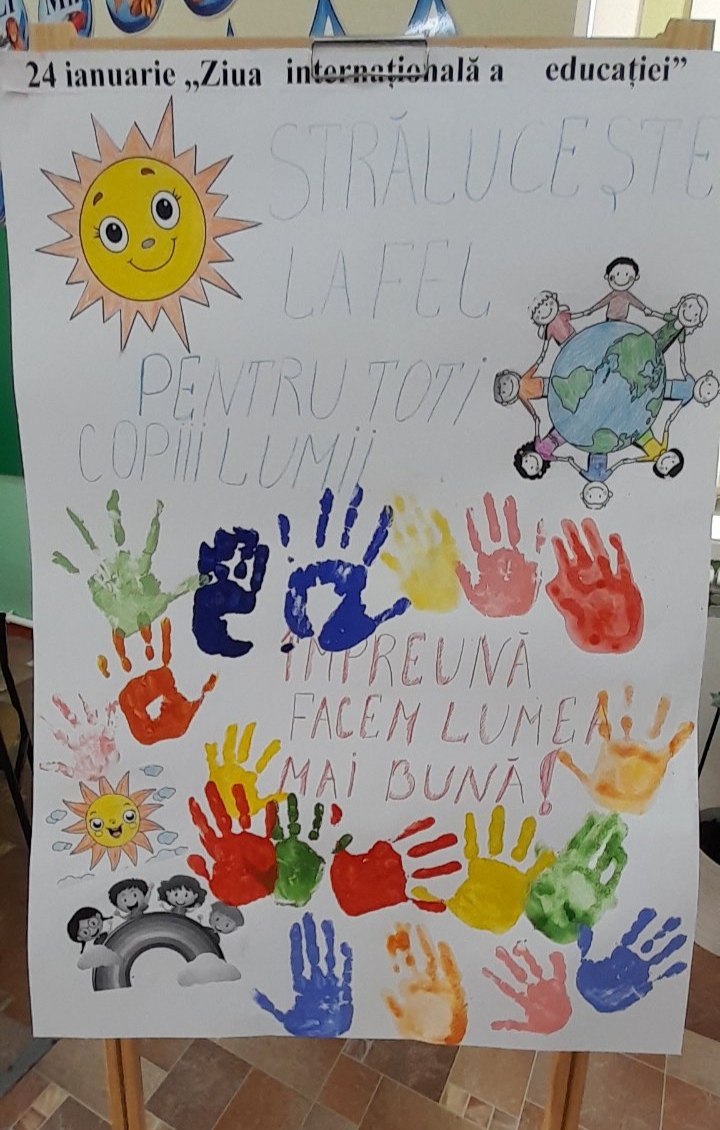 24 ianuarie „Ziua internațională a educației”
STRĂLUCEȘTE
LA FEL
PENTRU TOTI
COPIII LUMII
ÎMPREUNĂ
FACEM LUMEA
MAI BUNĂ!